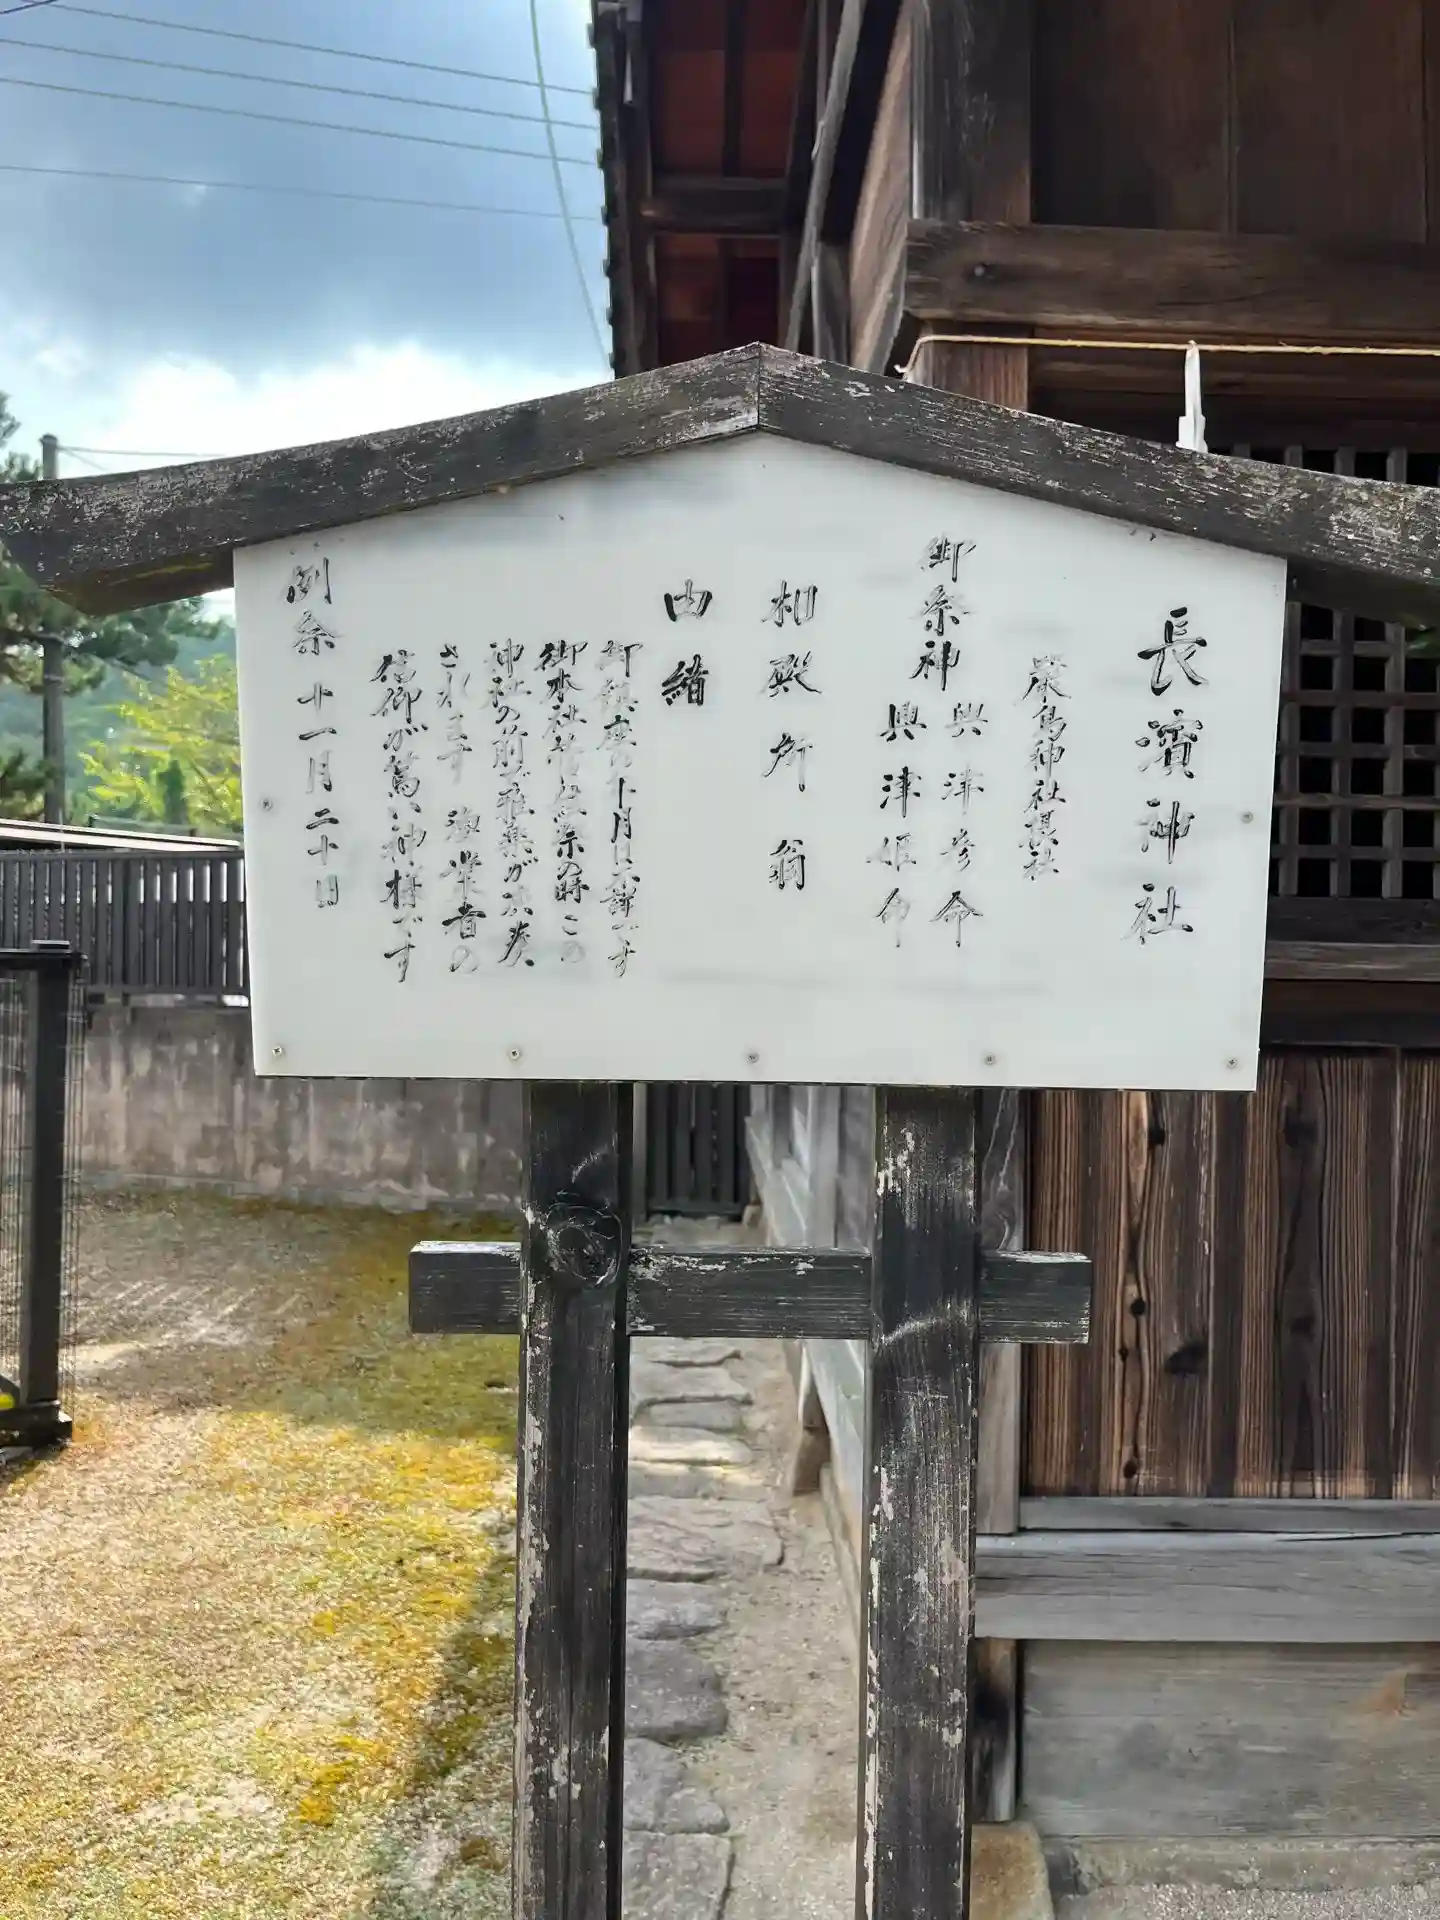 長濱神社
厳島神社摂社
御祭神 興津彦命
興津姫命
相殿 所翁
由緒
御鎮座の年月は不詳です
御本社管絃祭の時この
神社の前で雅楽が演奏
されます 漁業者の
信仰が篤い神様です
例祭 十一月二十日